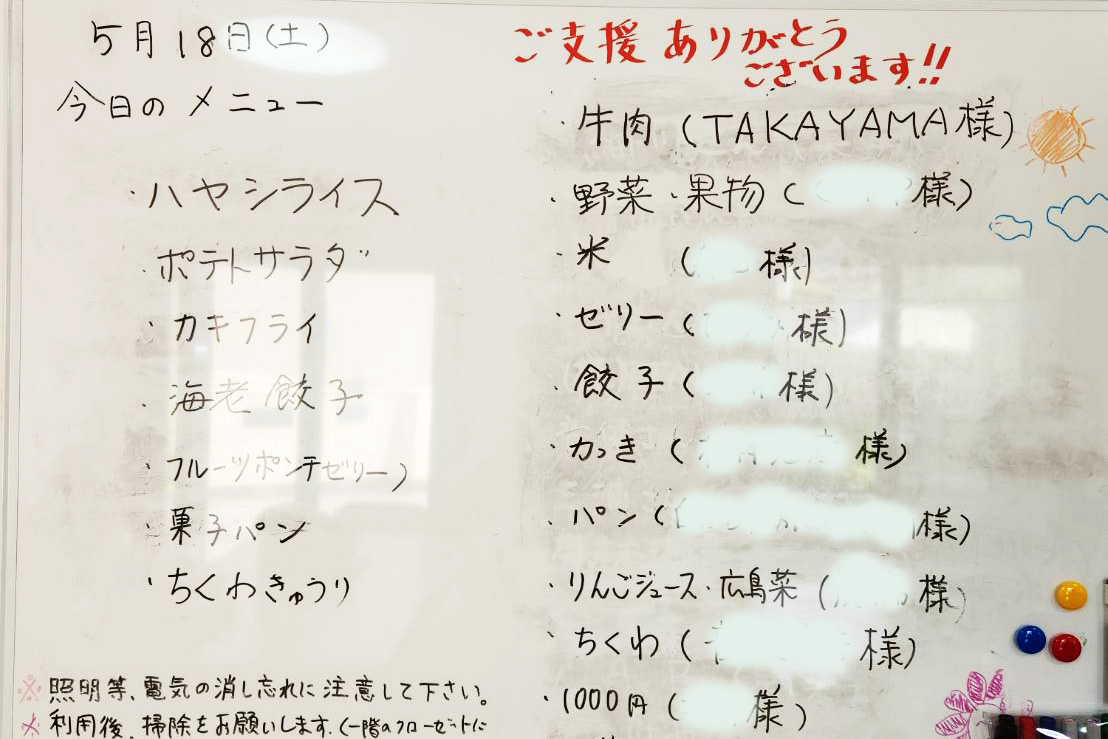 5月18日(土)
今日のメニュー
・ハヤシライス
・ポテトサラダ
・カキフライ
・海老餃子
・フルーツポンチゼリー)
・菓子パン
・ちくわきゅうり
※照明等、電気の消し忘れに注意して下さい。
※利用後、掃除をお願いします。(一階のクローゼットに
ご支援ありがとう
ございます!!
・牛肉(TAKAYAMA様)
・野菜・果物(様)
・米(様)
・ゼリー(様)
・餃子(様)
・かき(様)
・パン(様)
・りんごジュース・広島菜(様)
・ちくわ(様)
・1000円(様)